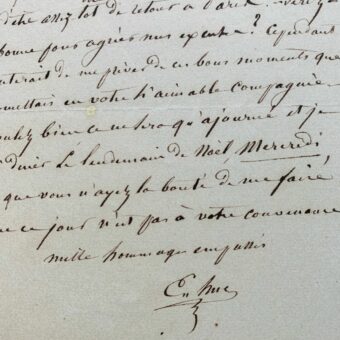 d'être assez tôt de retour à Paris
bonne pour agréer mes excuses? Cependant
me priver de ces bons moments que
mettais en votre si aimable compagnie.
bien ce ne sera qu'ajourné et je
dîner le lendemain de Noël, Mercredi
que vous n'ayez la bonté de me faire
ce jour n'est pas à votre convenance
mille hommages empressés